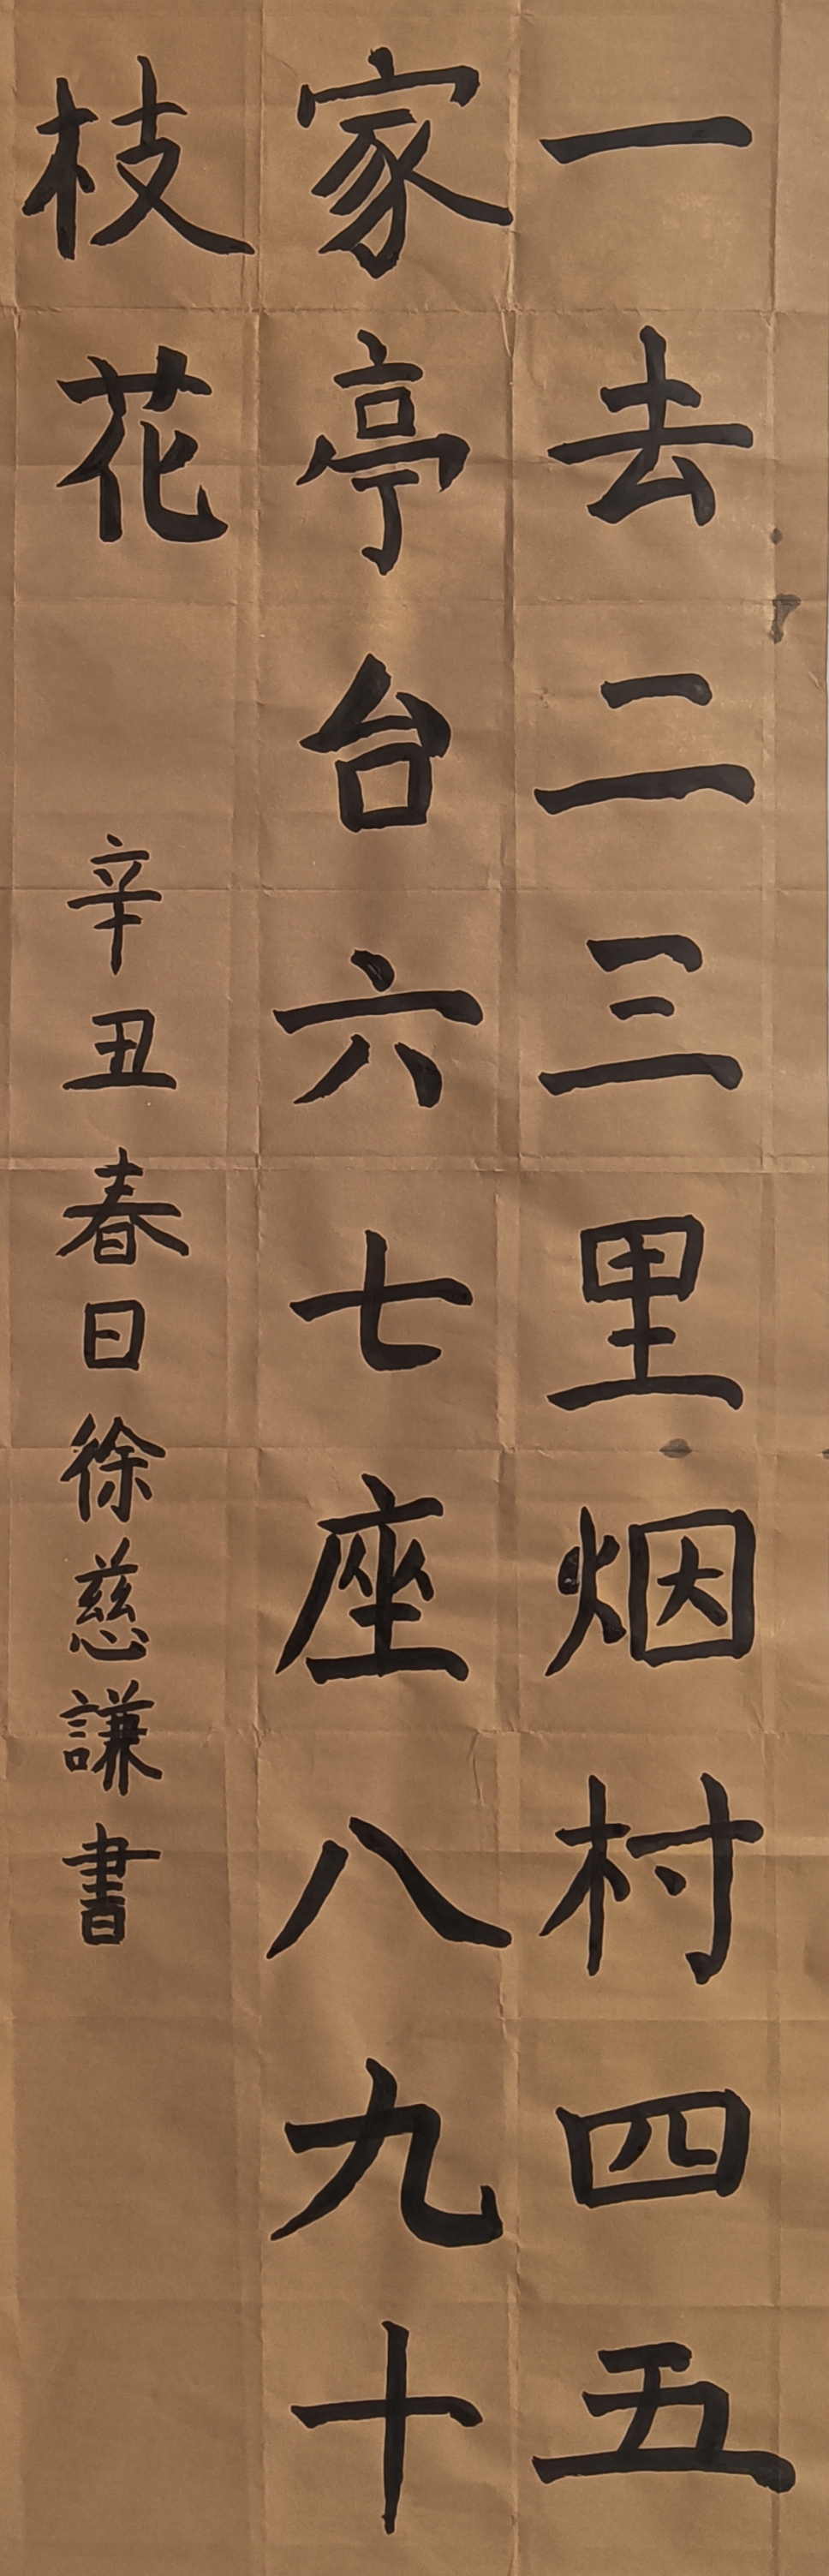 一去二三里烟村四五
家亭台六七座八九十
枝花
辛丑春日徐慈謙書